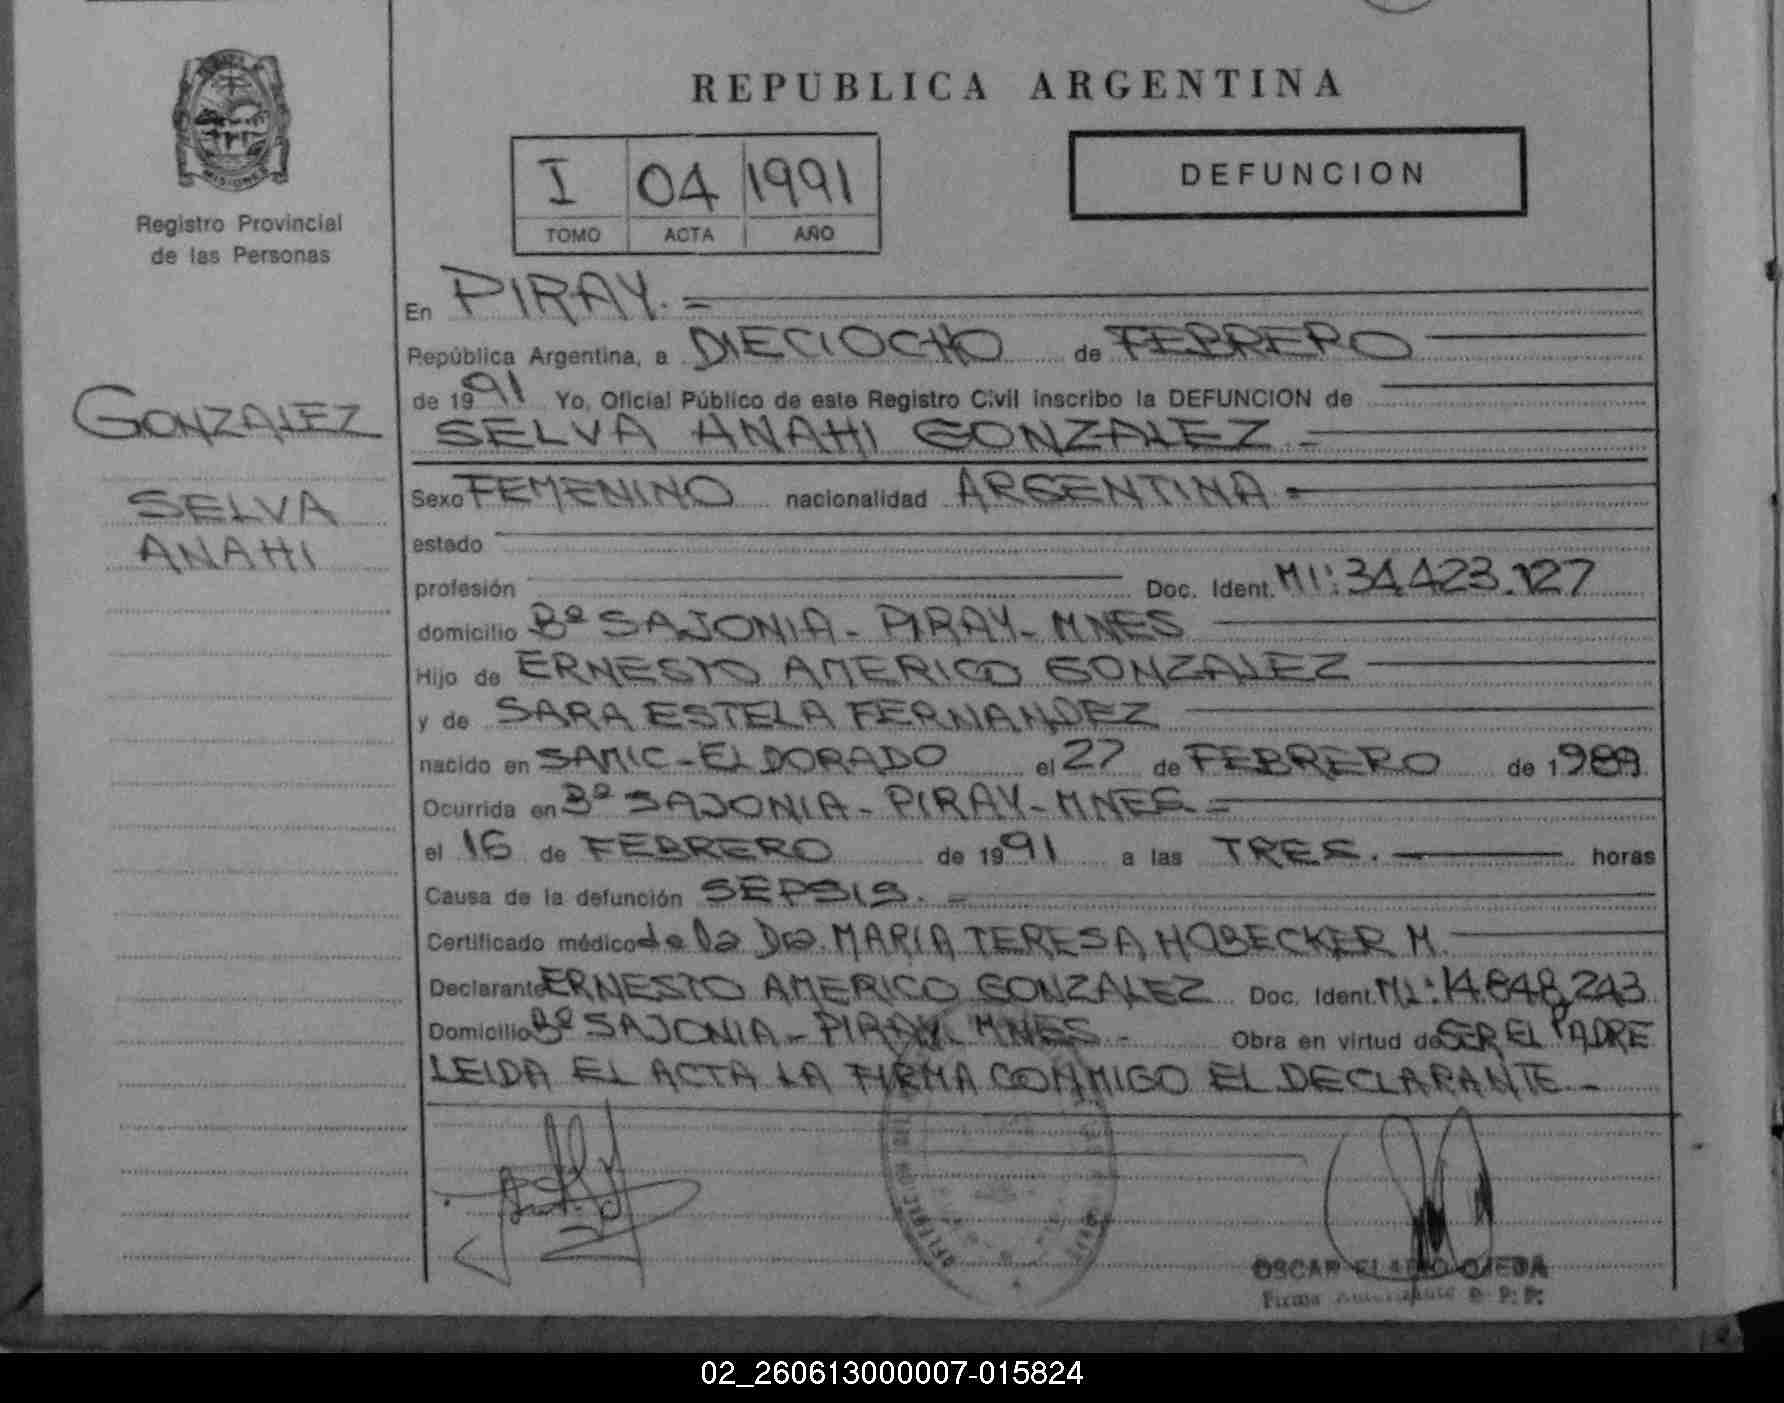 REPUBLICA ARGENTINA
MISIONES
Registro Provincial
de las Personas
I 04 1991
TOMO ACTA AÑO
DEFUNCION
En PIRAY.=
República Argentina, a DIECIOCHO de FEBRERO
de 1991 Yo, Oficial Público de este Registro Civil inscribo la DEFUNCION de
GONZALEZ
SELVA ANAHI GONZALEZ.=
SELVA
ANAHI
Sexo FEMENINO nacionalidad ARGENTINA.=
estado
profesión Doc. Ident. MI:34.423.127
domicilio Bº SAJONIA - PIRAY - MNES
Hijo de ERNESTO AMERICO GONZALEZ
y de SARA ESTELA FERNANDEZ
nacido en SAMIC - ELDORADO el 27 de FEBRERO de 1989
Ocurrida en Bº SAJONIA - PIRAY - MNES =
el 16 de FEBRERO de 1991 a las TRES. horas
Causa de la defunción SEPSIS. =
Certificado médico de la Dra. MARIA TERESA HOBECKER M.
Declarante ERNESTO AMERICO GONZALEZ Doc. Ident. MI:14.848.243
Domicilio Bº SAJONIA - PIRAY. MNES.- Obra en virtud de SER EL PADRE
LEIDA EL ACTA LA FIRMA CONMIGO EL DECLARANTE.-
OSCAR OJEDA
Firma
02_260613000007-015824